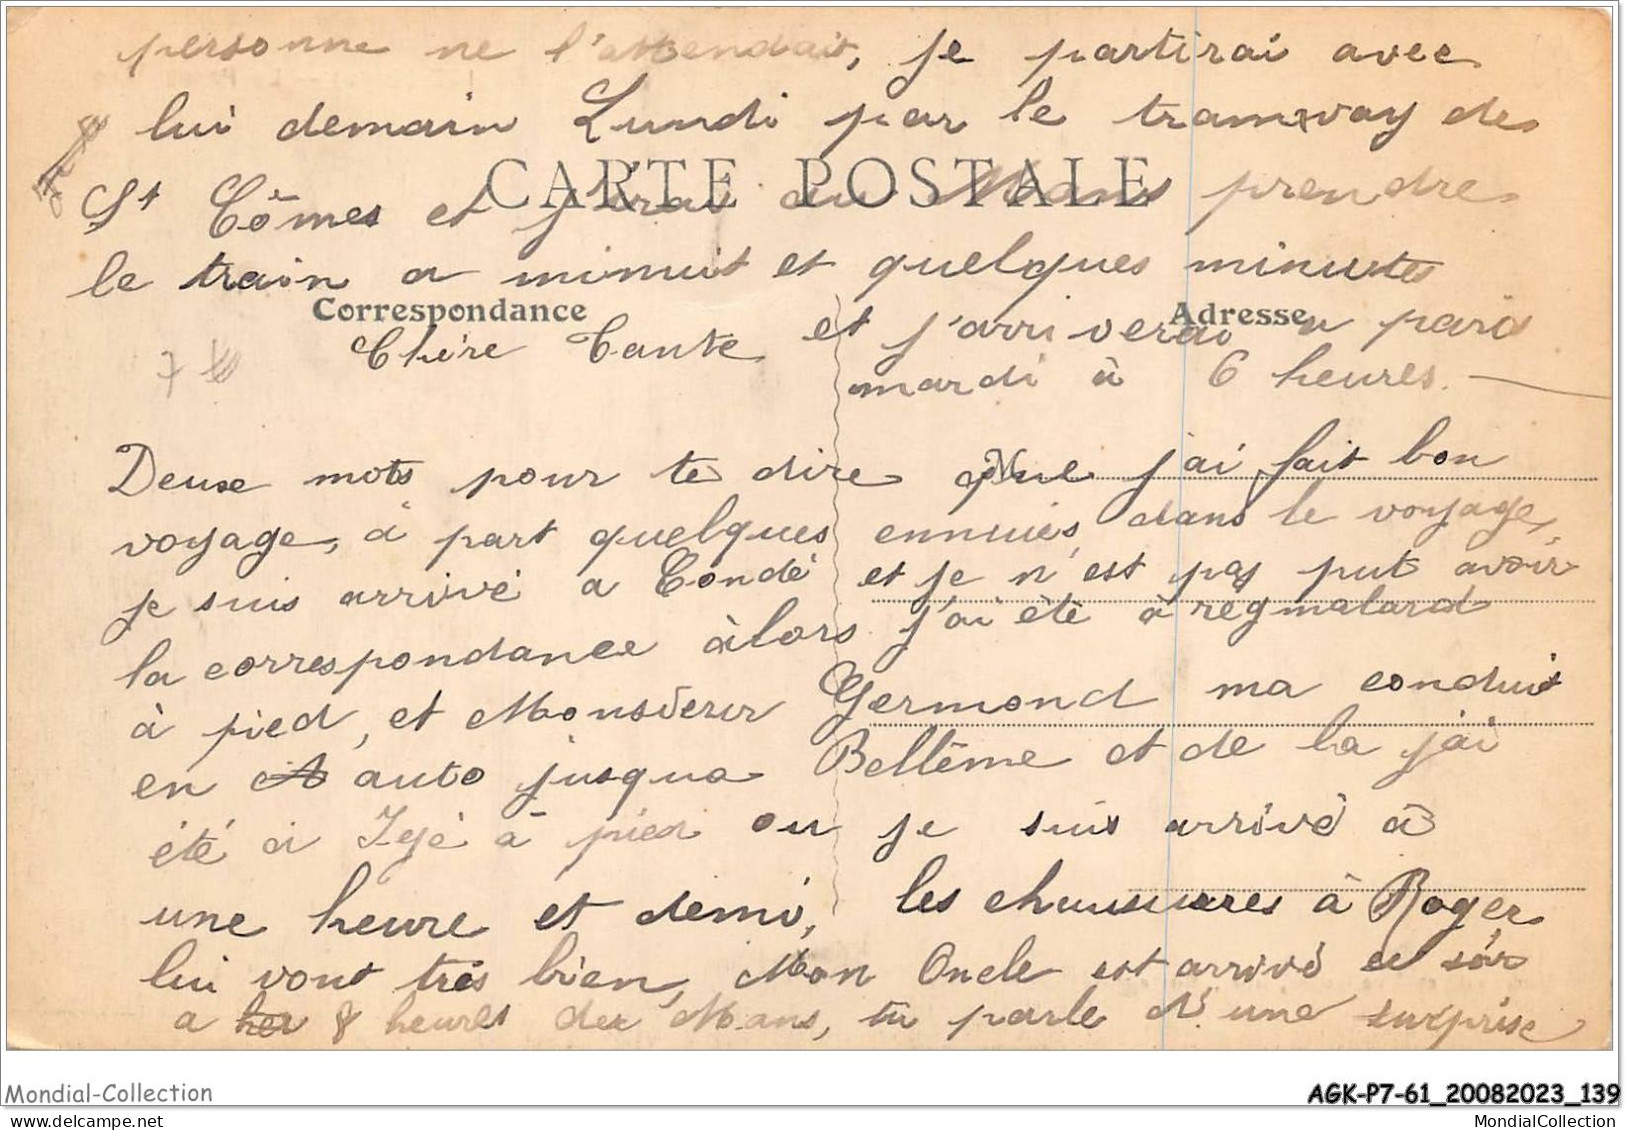 personne ne l'attendait, je partirai avec
lui demain Lundi par le tramway de
St Cômes et j'irai au Mans prendre
CARTE POSTALE
le train a minuit et quelques minutes
Correspondance
Adresse
Chère Tante
et j'arriverai a paris
mardi à 6 heures.
Deux mots pour te dire que j'ai fait bon
voyage, à part quelques ennuies, dans le voyage,
je suis arrivé a Condé et je n'est pas put avoir
la correspondance àlors j'ai été à regmalard
à pied, et Monsieur Germond ma conduit
en auto jusqua Bellême et de la j'ai
été a Igé a pied ou je suis arrivé à
une heure et demi, les chaussures à Roger
lui vont tres bien, Mon Oncle est arrivé ce soir
a 8 heures du Mans, tu parle d'une surprise
Mondial-Collection
AGK-P7-61_20082023_139
MondialCollection